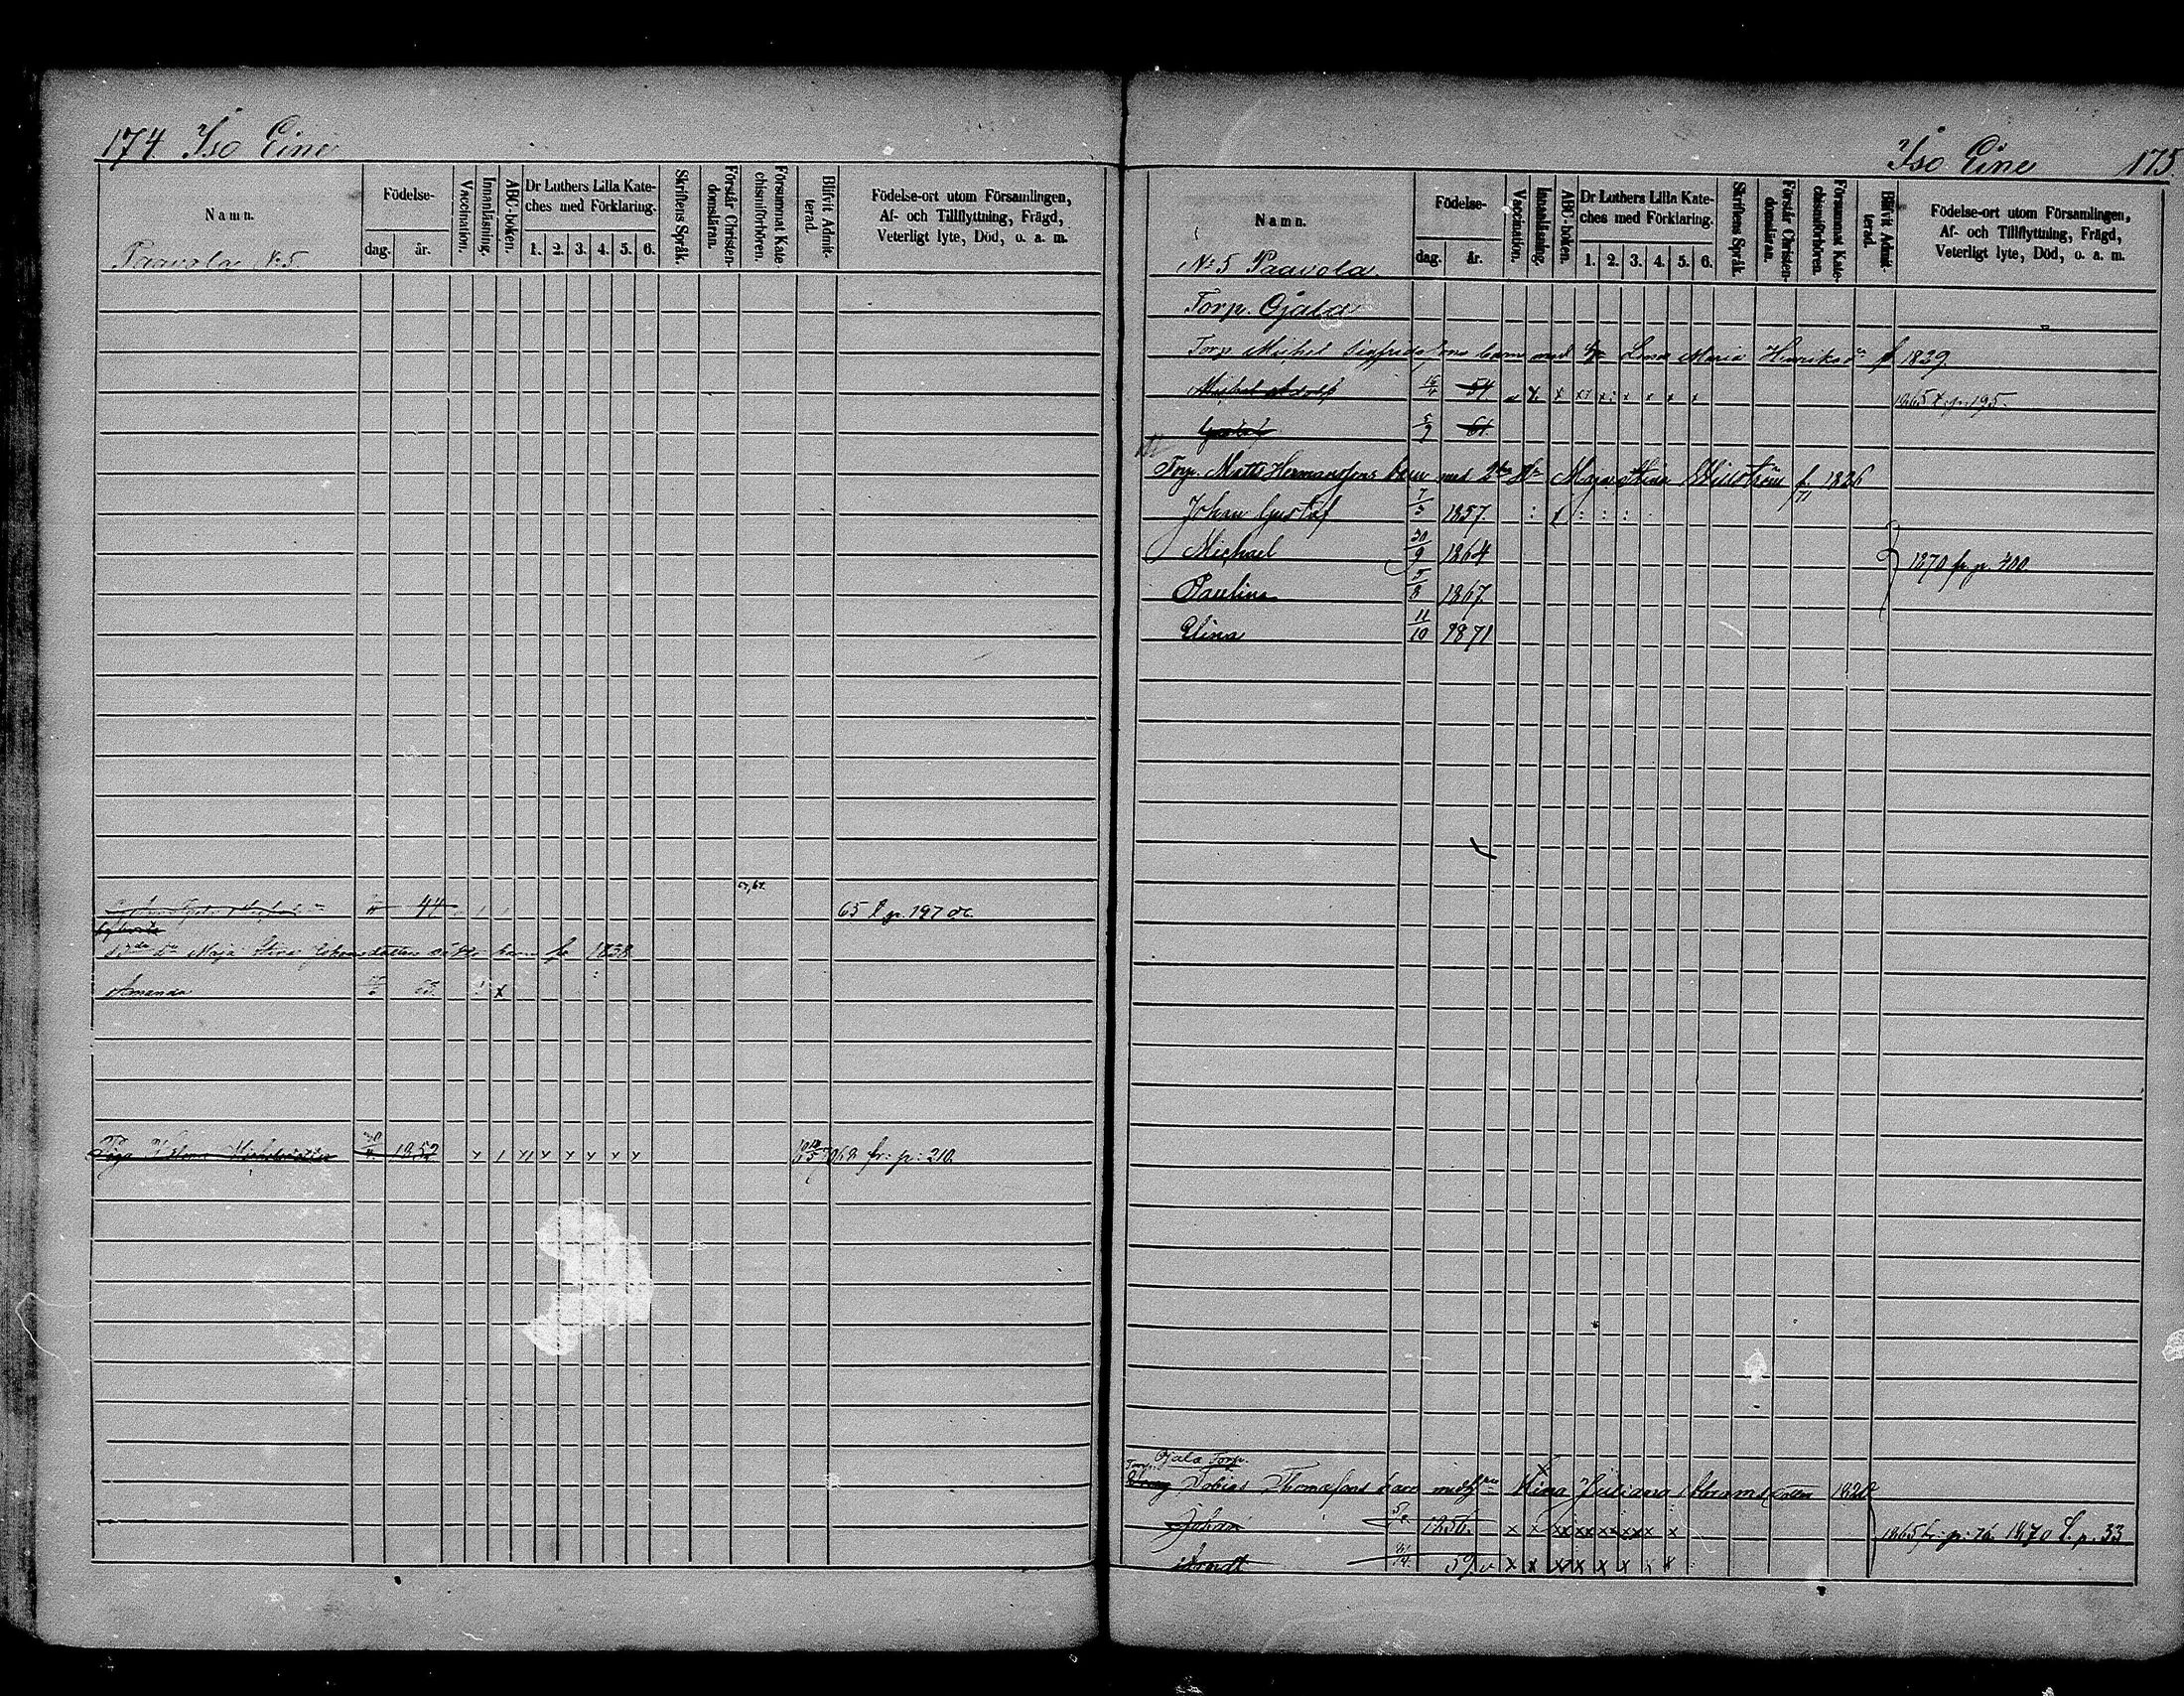 174. Iso Eine
Namn.
Födelse-
dag.
år.
Vaccination.
Innanläsning.
ABC-boken.
Dr Luthers Lilla Kate-
ches med Förklaring.
1. 2. 3. 4. 5. 6.
Skriftens Språk.
Förstår Christen-
domsläran.
Försummat Kate-
chismiförhören.
Blifvit Admit-
terad.
Födelse-ort utom Församlingen,
Af- och Tillflyttning, Frägd,
Veterligt lyte, Död, o. a. m.
Paavola N:o 5.
44 65 t. p. 197
Maja Stina barn fr 1838
Amanda x
Piga 1852 x 1 x1 x x x x x 68 fr: p: 210.
Iso Eine 175
Namn.
Födelse-
dag.
år.
Vaccination.
Innanläsning.
ABC-boken.
Dr Luthers Lilla Kate-
ches med Förklaring.
1. 2. 3. 4. 5. 6.
Skriftens Språk.
Förstår Christen-
domsläran.
Försummat Kate-
chismiförhören.
Blifvit Admit-
terad.
Födelse-ort utom Församlingen,
Af- och Tillflyttning, Frägd,
Veterligt lyte, Död, o. a. m.
N:o 5 Paavola
Torp. Ojala
Torp. Michel Sigfridssons barn med Maria Henriksdr f. 1839.
Michel Adolf 54 1865 t. p. 195.
Gustaf 5/9 61.
Torp. Matts Hermanssons barn med 2dra Maja Stina f. 1826
Johan Gustaf 1857.
Michael 30/9 1864 1870 fr. p. 400.
Paulina 5/8 1867.
Elina 11/10 1871
Ojala Torp.
Torp. Tobias Thomassons barn med Juliana Abramsdotter
Johan 1856. 1865 fr: p: 1870 t. p. 33
59 x x x x x x x